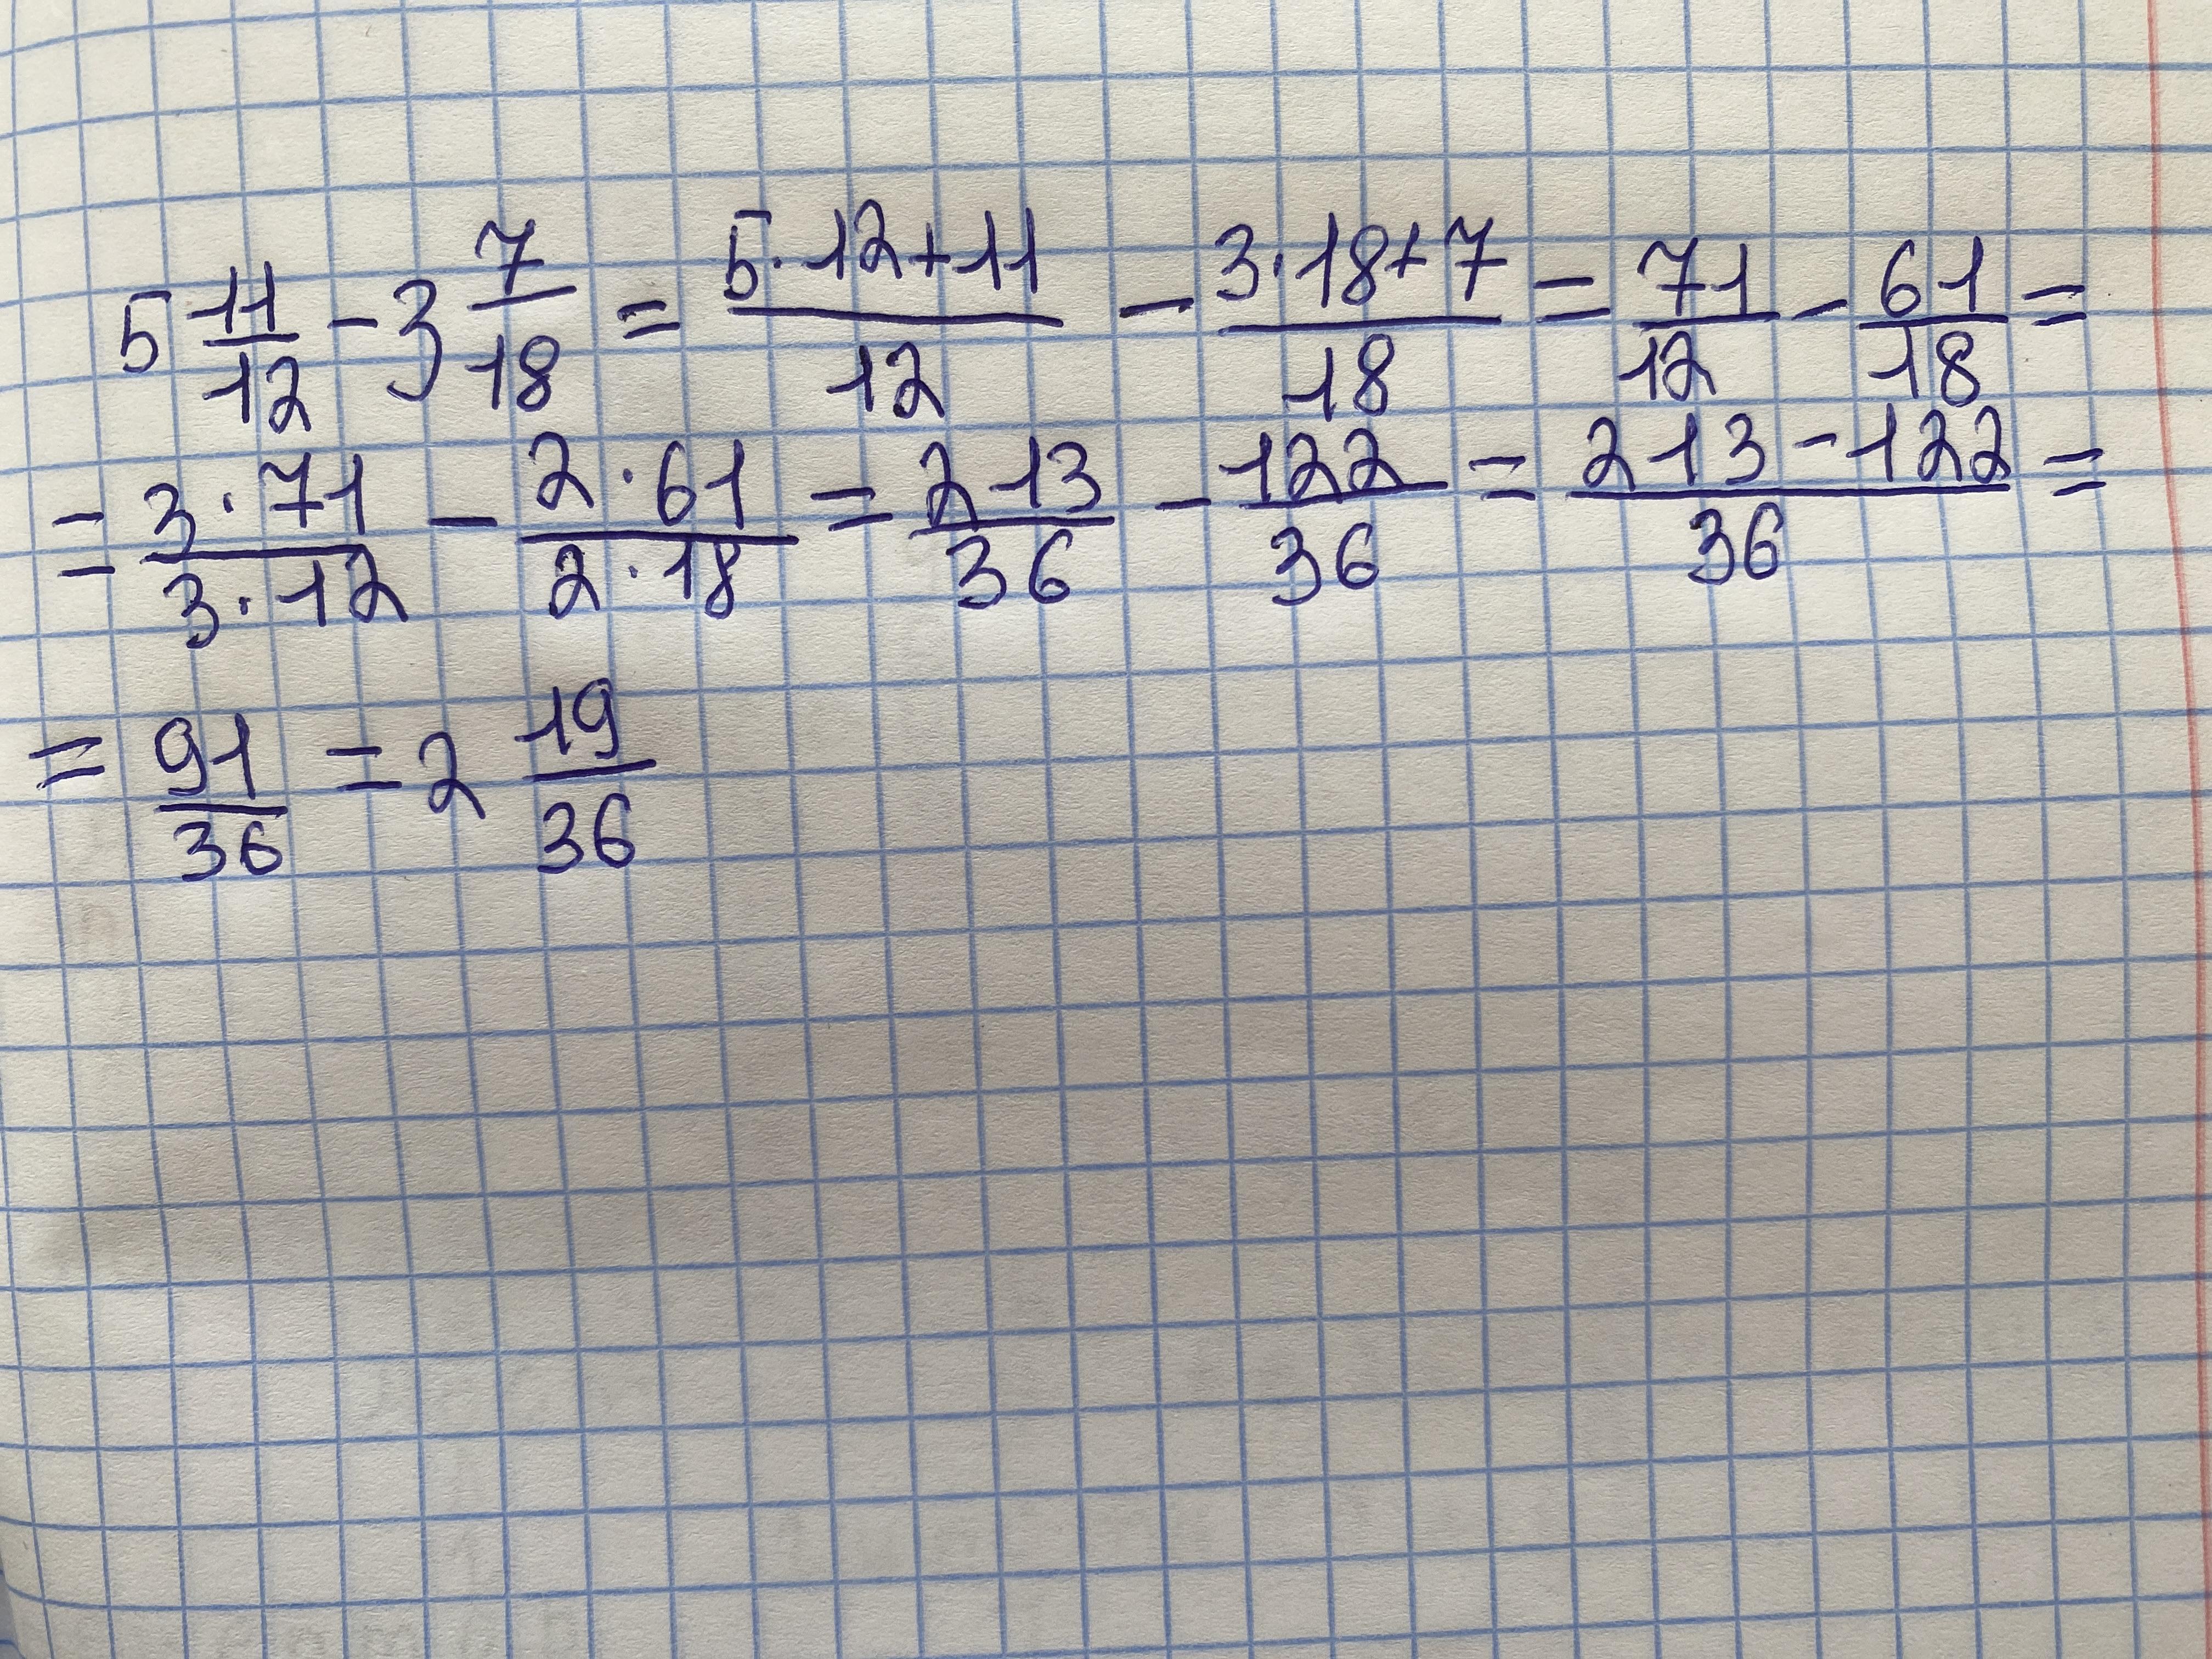 5 11/12 - 3 7/18 = (5·12+11)/12 - (3·18+7)/18 = 71/12 - 61/18 =
= (3·71)/(3·12) - (2·61)/(2·18) = 213/36 - 122/36 = (213-122)/36 =
= 91/36 = 2 19/36